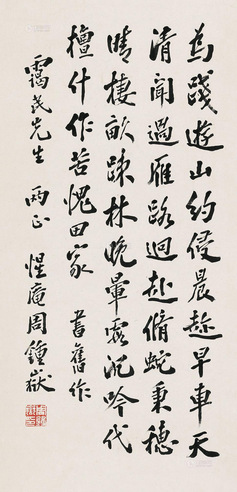 為踐遊山約侵晨趁早車天
清聞過雁路迴起脩蛇秉穗
晴棲畝疎林晚暈霞沉吟伐
檀什作苦愧田家 書舊作
靄民先生 兩正 惺庵周鍾嶽